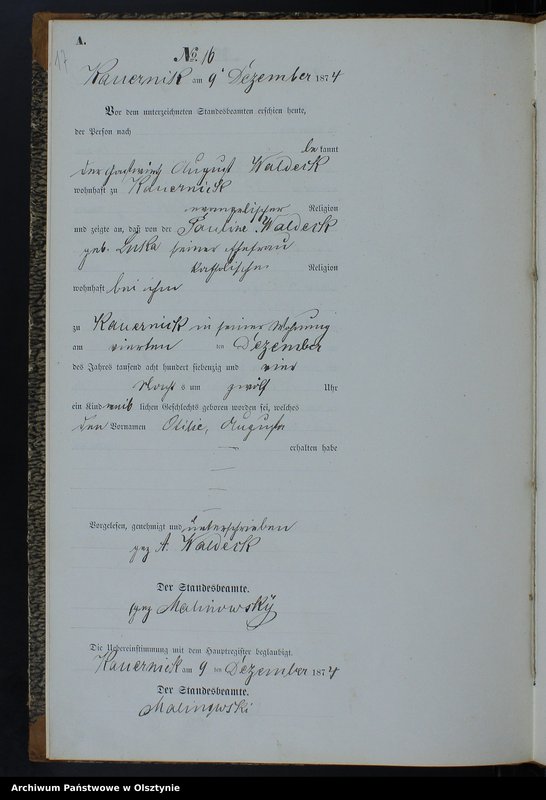 A.
17
No. 16
Kauernik am 9 Dezember 1874
Vor dem unterzeichneten Standesbeamten erschien heute,
der Person nach
be kannt
der August Waldeck
wohnhaft zu Kauernick
evangelischer Religion
und zeigte an, daß von der Pauline Waldeck
geb. Luka seiner Ehefrau
katholischer Religion
wohnhaft bei ihm
zu Kauernick in seiner Wohnung
am vierten ten Dezember
des Jahres tausend acht hundert siebenzig und vier
Nacht s um zwölf Uhr
ein Kind weib lichen Geschlechts geboren worden sei, welches
den Vornamen Otilie, Augusta
erhalten habe
Vorgelesen, genehmigt und unterschrieben
gez A. Waldeck
Der Standesbeamte.
gez Malinowsky
Die Uebereinstimmung mit dem Hauptregister beglaubigt.
Kauernick am 9 ten Dezember 1874
Der Standesbeamte.
Malinowski
Archiwum Państwowe w Olsztynie